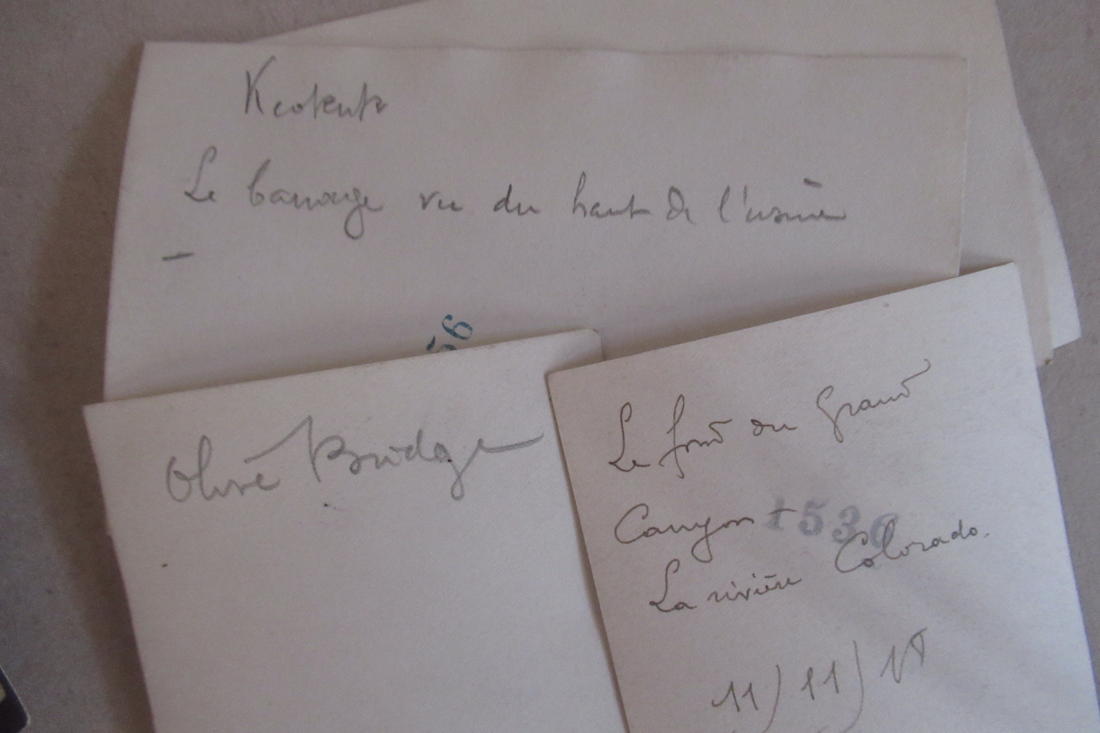 Keokuk
Le barrage vu du haut de l'usine
56
Olive Bridge
Le fond du Grand
Canyon +
1536
La rivière Colorado.
11/11/18